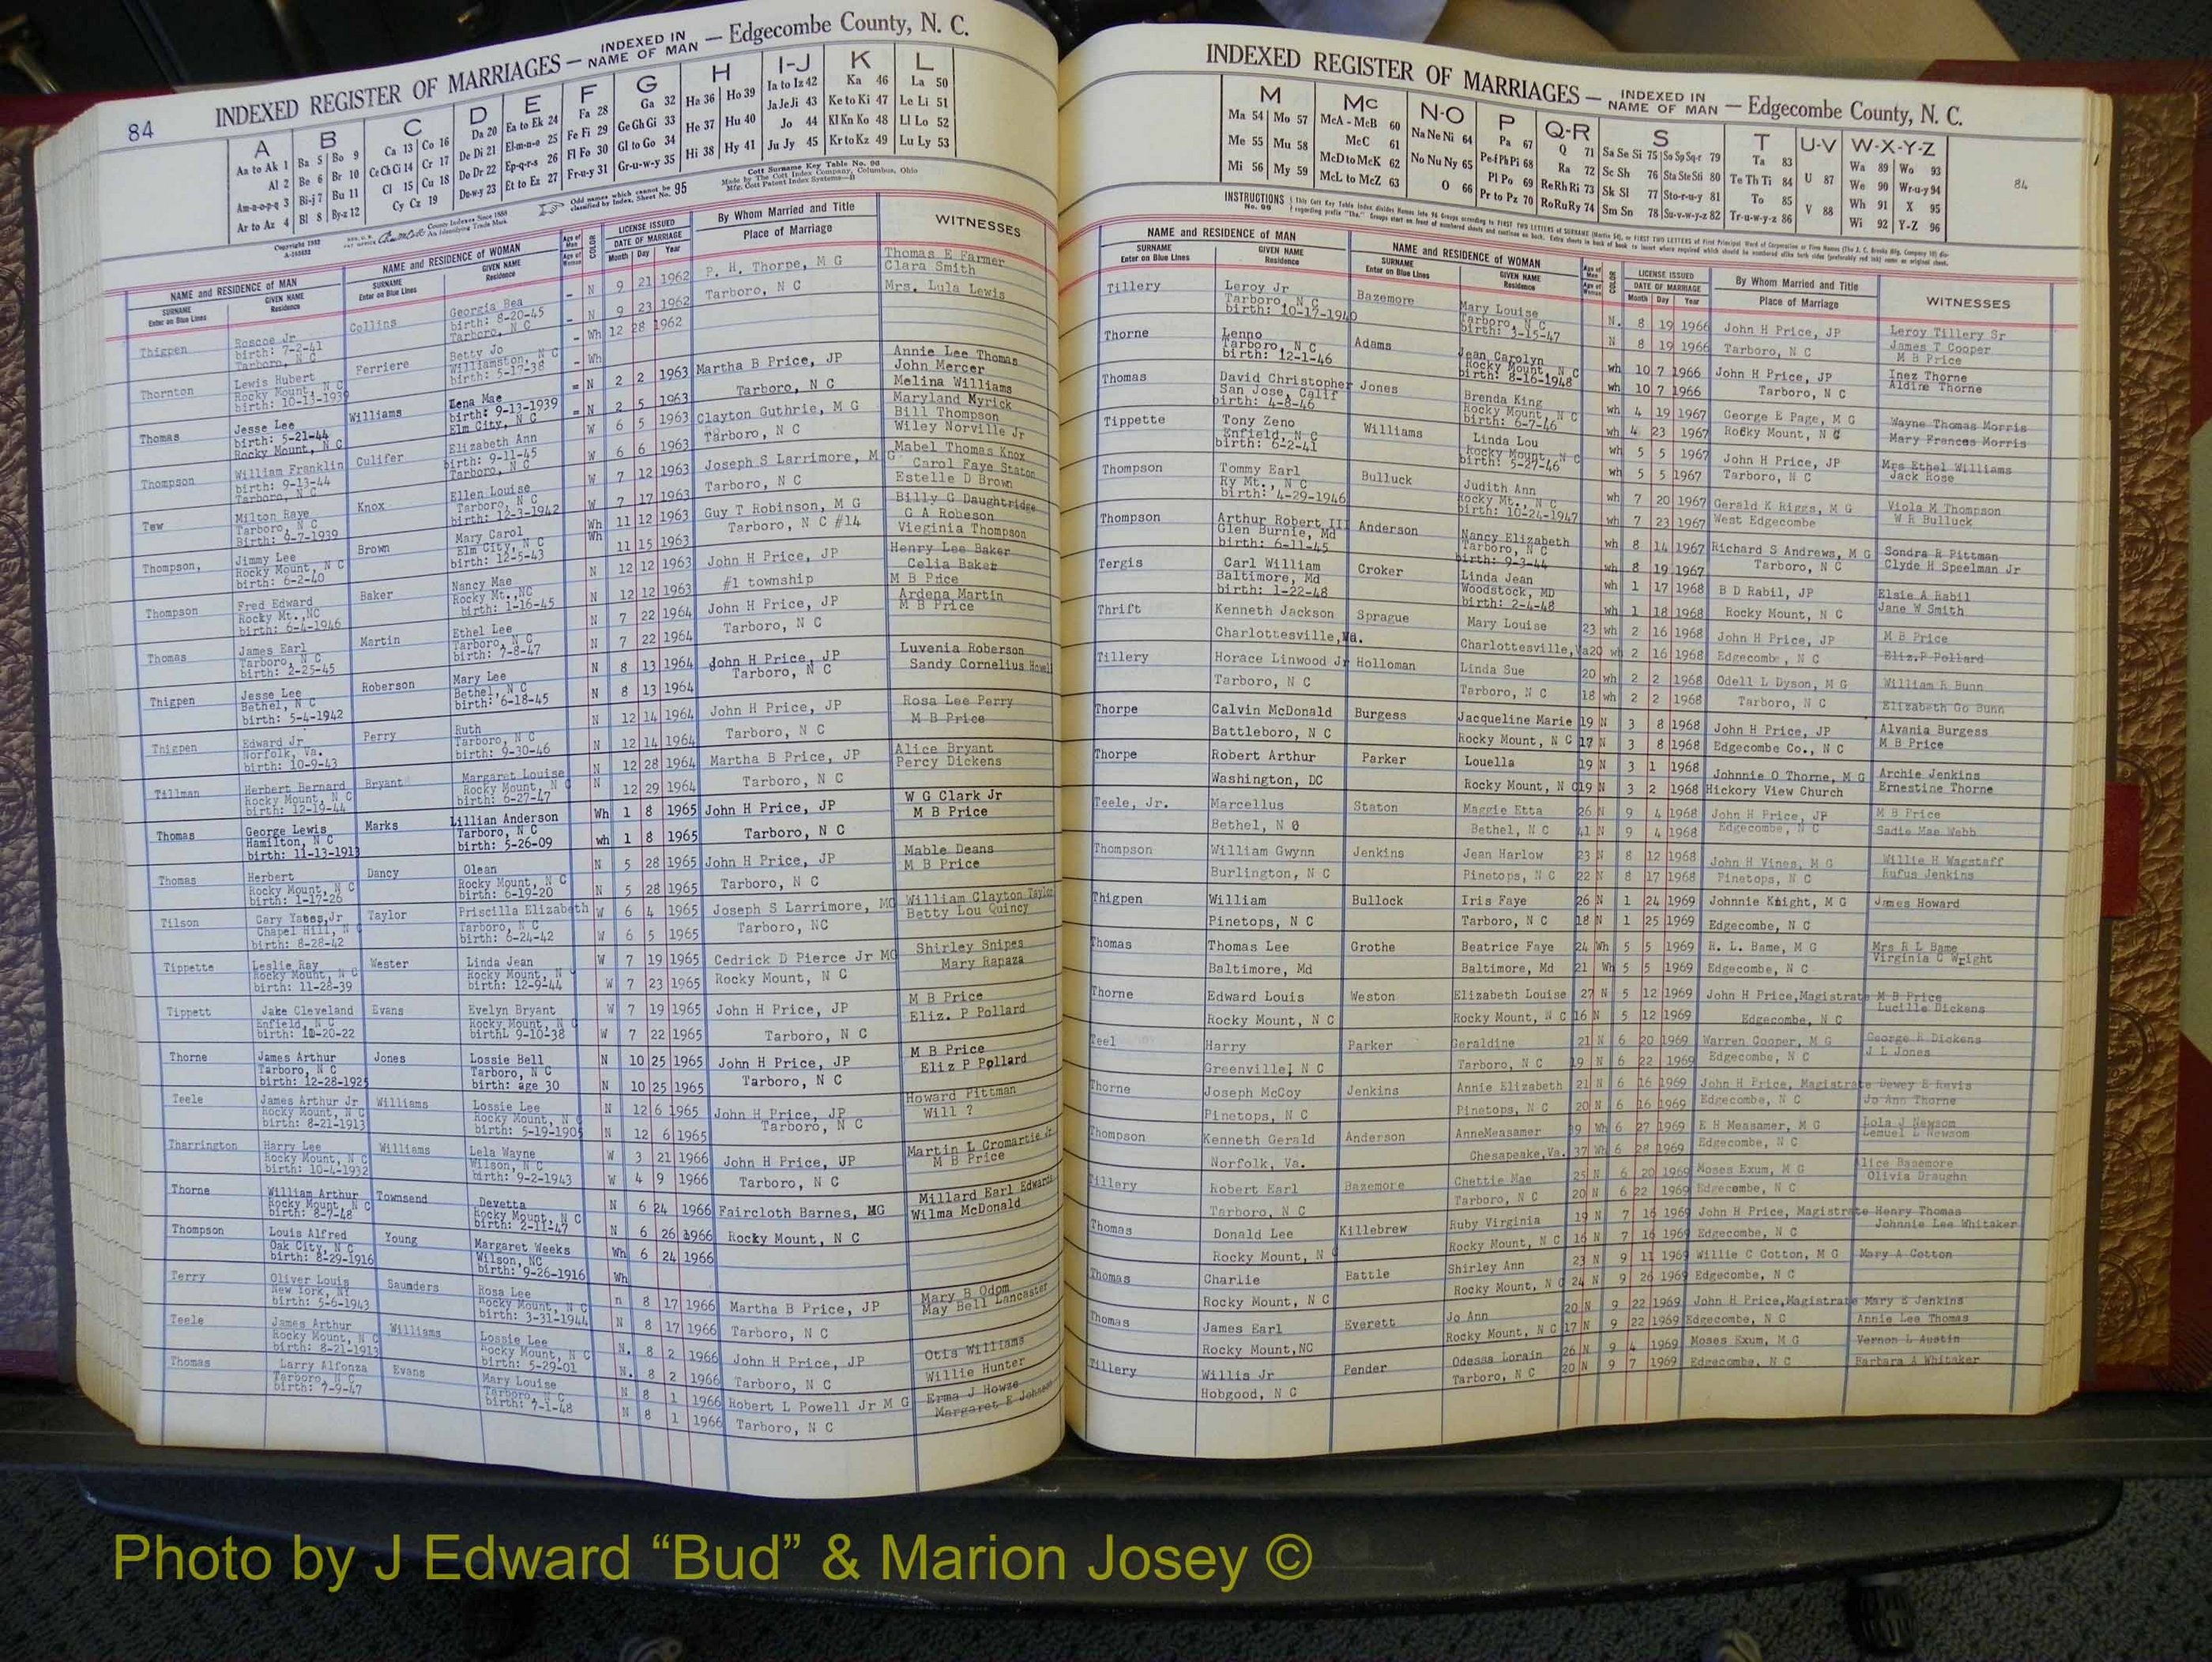 84
INDEXED REGISTER OF MARRIAGES — INDEXED IN NAME OF MAN — Edgecombe County, N. C.
A B C D E F G H I-J K L
Aa to Ak 1 Ba 5 Bo 9 Ca 13 Co 16 Da 20 Ea to Ek 24 Fa 28 Ga 32 Ha 36 Ho 39 Ia to Iz 42 Ka 46 La 50
Al 2 Be 6 Br 10 Ce Ch Ci 14 Cr 17 De Di 21 El-m-n-o 25 Fe Fi 29 Ge Gh Gi 33 He 37 Hu 40 Ja Je Ji 43 Ke to Ki 47 Le Li 51
Am-n-o-p-q 3 Bi-j 7 Bu 11 Cl 15 Cu 18 Do Dr 22 Ep-q-r-s 26 Fl Fo 30 Gl to Go 34 Hi 38 Hy 41 Jo 44 Kl Kn Ko 48 Ll Lo 52
Ar to Az 4 Bl 8 By-z 12 Cy Cz 19 Du-w-y 23 Et to Ez 27 Fr-u-y 31 Gr-u-w-y 35 Ju Jy 45 Kr to Kz 49 Lu Ly 53
Odd names which cannot be classified by Index, Sheet No. 95
Cott Surname Key Table No. 96
Made by The Cott Index Company, Columbus, Ohio
NAME and RESIDENCE OF MAN NAME and RESIDENCE OF WOMAN COLOR LICENSE ISSUED By Whom Married and Title WITNESSES
SURNAME GIVEN NAME SURNAME GIVEN NAME DATE OF MARRIAGE Place of Marriage
Enter on Blue Lines Residence Enter on Blue Lines Residence Month Day Year
Thigpen Roscoe Jr Collins Georgia Bea N 9 21 1962 P. H. Thorpe, M G Thomas E Farmer
birth: 7-2-41 birth: 8-20-45 Clara Smith
Tarboro, N C Tarboro, N C N 9 23 1962 Tarboro, N C Mrs. Lula Lewis
Thornton Lewis Hubert Ferriere Betty Jo Wh 12 28 1962
Rocky Mount, N C Williamston, N C
birth: 10-13-1939 birth: 5-17-38 Wh
Thomas Jesse Lee Williams Lena Mae N 2 2 1963 Martha B Price, JP Annie Lee Thomas
birth: 5-21-44 birth: 9-13-1939 John Mercer
Rocky Mount, N C Elm City, N C N 2 5 1963 Tarboro, N C Melina Williams
Thompson William Franklin Culifer Elizabeth Ann W 6 5 1963 Clayton Guthrie, M G Maryland Myrick
birth: 9-13-44 birth: 9-11-45 Bill Thompson
Tarboro, N C Tarboro, N C W 6 6 1963 Tarboro, N C Wiley Norville Jr
Tew Milton Raye Knox Ellen Louise W 7 12 1963 Joseph S Larrimore, M G Mabel Thomas Knox
Tarboro, N C Tarboro, N C Carol Faye Staton
Birth: 9-7-1939 birth: 12-3-1942 W 7 17 1963 Tarboro, N C Estelle D Brown
Thompson, Jimmy Lee Brown Mary Carol Wh 11 12 1963 Guy T Robinson, M G Billy G Daughtridge
Rocky Mount, N C Elm City, N C G A Robeson
birth: 6-2-40 birth: 12-5-43 Wh 11 15 1963 Tarboro, N C #14 Vieginia Thompson
Thompson Fred Edward Baker Nancy Mae N 12 12 1963 John H Price, JP Henry Lee Baker
Rocky Mt.,NC Rocky Mt.,NC Celia Baker
birth: 6-4-1946 birth: 1-16-45 N 12 12 1963 #1 township M B Price
Thomas James Earl Martin Ethel Lee N 7 22 1964 John H Price, JP Ardena Martin
Tarboro, N C Tarboro, N C M B Price
birth: 2-25-45 birth: 7-8-47 N 7 22 1964 Tarboro, N C
Thigpen Jesse Lee Roberson Mary Lee N 8 13 1964 John H Price, JP Luvenia Roberson
Bethel, N C Bethel, N C Tarboro, N C Sandy Cornelius Howell
birth: 5-4-1942 birth: 6-18-45 N 8 13 1964
Thigpen Edward Jr Perry Ruth N 12 14 1964 John H Price, JP Rosa Lee Perry
Norfolk, Va. Tarboro, N C M B Price
birth: 10-9-43 birth: 9-30-46 N 12 14 1964 Tarboro, N C
Tillman Herbert Bernard Bryant Margaret Louise N 12 28 1964 Martha B Price, JP Alice Bryant
Rocky Mount, N C Rocky Mount, N C Percy Dickens
birth: 12-19-44 birth: 6-27-47 N 12 29 1964 Tarboro, N C
Thomas George Lewis Marks Lillian Anderson Wh 1 8 1965 John H Price, JP W G Clark Jr
Hamilton, N C Tarboro, N C M B Price
birth: 11-13-1913 birth: 5-26-09 wh 1 8 1965 Tarboro, N C
Thomas Herbert Dancy Olean N 5 28 1965 John H Price, JP Mable Deans
Rocky Mount, N C Rocky Mount, N C M B Price
birth: 1-17-26 birth: 6-19-20 N 5 28 1965 Tarboro, N C
Tilson Cary Yates,Jr Taylor Priscilla Elizabeth W 6 4 1965 Joseph S Larrimore, MG William Clayton Taylor
Chapel Hill, N C Tarboro, N C Betty Lou Quincy
birth: 8-28-42 birth: 6-24-42 W 6 5 1965 Tarboro, NC
Tippette Leslie Ray Wester Linda Jean W 7 19 1965 Cedrick D Pierce Jr MG Shirley Snipes
Rocky Mount, N C Rocky Mount, N C Mary Rapaza
birth: 11-28-39 birth: 12-9-44 W 7 23 1965 Rocky Mount, N C
Tippett Jake Cleveland Evans Evelyn Bryant W 7 19 1965 John H Price, JP M B Price
Enfield, N C Rocky Mount, N C Eliz. P Pollard
birth: 10-20-22 birthL 9-10-38 W 7 22 1965 Tarboro, N C
Thorne James Arthur Jones Lossie Bell N 10 25 1965 John H Price, JP M B Price
Tarboro, N C Tarboro, N C Eliz P Pollard
birth: 12-28-1925 birth: age 30 N 10 25 1965 Tarboro, N C
Teele James Arthur Jr Williams Lossie Lee N 12 6 1965 John H Price, JP Howard Pittman
Rocky Mount, N C Rocky Mount, N C Tarboro, N C Will ?
birth: 8-21-1913 birth: 5-19-1905 N 12 6 1965
Tharrington Harry Lee Williams Lela Wayne W 3 21 1966 John H Price, JP Martin L Cromartie Jr
Rocky Mount, N C Wilson, N C M B Price
birth: 10-4-1932 birth: 9-2-1943 W 4 9 1966 Tarboro, N C
Thorne William Arthur Townsend Devetta N 6 24 1966 Faircloth Barnes, MG Millard Earl Edwards
Rocky Mount, N C Rocky Mount, N C Wilma McDonald
birth: 8-7-48 birth: 2-11-47 N 6 26 1966 Rocky Mount, N C
Thompson Louis Alfred Young Margaret Weeks Wh 6 24 1966
Oak City, N C Wilson, NC
birth: 8-29-1916 birth: 9-26-1916 Wh
Terry Oliver Louis Saunders Rosa Lee n 8 17 1966 Martha B Price, JP Mary B Odom
New York, NY Rocky Mount, N C May Bell Lancaster
birth: 5-6-1943 birth: 3-31-1944 N 8 17 1966 Tarboro, N C
Teele James Arthur Williams Lossie Lee N. 8 2 1966 John H Price, JP Otis Williams
Rocky Mount, N C Rocky Mount, N C Willie Hunter
birth: 8-21-1913 birth: 5-29-01 N. 8 2 1966 Tarboro, N C
Thomas Larry Alfonza Evans Mary Louise N 8 1 1966 Robert L Powell Jr M G Erma J Howze
Tarboro, N C Tarboro, N C Margaret E Johnson
birth: 7-9-47 birth: 7-1-48 N 8 1 1966 Tarboro, N C
INDEXED REGISTER OF MARRIAGES — INDEXED IN NAME OF MAN — Edgecombe County, N. C.
M Mc N-O P Q-R S T U-V W-X-Y-Z
Ma 54 Mo 57 McA - McB 60 Na Ne Ni 64 Pa 67 Q 71 Sa Se Si 75 So Sp Sq-r 79 Ta 83 U 87 Wa 89 Wo 93
Me 55 Mu 58 McC 61 No Nu Ny 65 Pe-f Ph Pi 68 Ra 72 Sc Sh 76 Sta Ste Sti 80 Te Th Ti 84 V 88 We 90 Wr-u-y 94
Mi 56 My 59 McD to McK 62 O 66 Pl Po 69 Re Rh Ri 73 Sk Sl 77 Sto-r-u-y 81 To 85 Wh 91 X 95
McL to McZ 63 Pr to Pz 70 Ro Ru Ry 74 Sm Sn 78 Su-v-w-y-z 82 Tr-u-w-y-z 86 Wi 92 Y-Z 96
84
INSTRUCTIONS
NAME and RESIDENCE OF MAN NAME and RESIDENCE OF WOMAN COLOR LICENSE ISSUED By Whom Married and Title WITNESSES
SURNAME GIVEN NAME SURNAME GIVEN NAME DATE OF MARRIAGE Place of Marriage
Enter on Blue Lines Residence Enter on Blue Lines Residence Month Day Year
Tillery Leroy Jr Bazemore Mary Louise N. 8 19 1966 John H Price, JP Leroy Tillery Sr
Tarboro, N C Tarboro, N C James T Cooper
birth: 10-17-1940 birth: 3-15-47 N 8 19 1966 Tarboro, N C M B Price
Thorne Lenno Adams Jean Carolyn wh 10 7 1966 John H Price, JP Inez Thorne
Tarboro, N C Rocky Mount, N C Aldire Thorne
birth: 12-1-46 birth: 8-16-1948 wh 10 7 1966 Tarboro, N C
Thomas David Christopher Jones Brenda King wh 4 19 1967 George E Page, M G Wayne Thomas Morris
San Jose, Calif Rocky Mount, N C
birth: 4-8-46 birth: 6-7-46 wh 4 23 1967 Rocky Mount, N C Mary Frances Morris
Tippette Tony Zeno Williams Linda Lou wh 5 5 1967 John H Price, JP Mrs Ethel Williams
Enfield, N C Rocky Mount, N C Jack Rose
birth: 6-2-41 birth: 5-27-46 wh 5 5 1967 Tarboro, N C
Thompson Tommy Earl Bulluck Judith Ann wh 7 20 1967 Gerald K Riggs, M G Viola M Thompson
Ry Mt., N C Rocky Mt., N C W R Bulluck
birth: 4-29-1946 birth: 10-24-1947 wh 7 23 1967 West Edgecombe
Thompson Arthur Robert III Anderson Nancy Elizabeth wh 8 14 1967 Richard S Andrews, M G Sondra R Pittman
Glen Burnie, Md Tarboro, N C Clyde H Speelman Jr
birth: 6-11-45 birth: 9-3-44 wh 8 19 1967 Tarboro, N C
Tergis Carl William Croker Linda Jean wh 1 17 1968 B D Rabil, JP Elsie A Rabil
Baltimore, Md Woodstock, MD Jane W Smith
birth: 1-22-48 birth: 2-4-48 wh 1 18 1968 Rocky Mount, N C
Thrift Kenneth Jackson Sprague Mary Louise 23 wh 2 16 1968 John H Price, JP M B Price
Charlottesville, Va. Charlottesville, Va 20 wh 2 16 1968 Edgecombe, N C Eliz.P Pollard
Tillery Horace Linwood Jr Holloman Linda Sue 20 wh 2 2 1968 Odell L Dyson, M G William R Bunn
Tarboro, N C Tarboro, N C 18 wh 2 2 1968 Tarboro, N C Elizabeth Go Bunn
Thorpe Calvin McDonald Burgess Jacqueline Marie 19 N 3 8 1968 John H Price, JP Alvania Burgess
Battleboro, N C Rocky Mount, N C 17 N 3 8 1968 Edgecombe Co., N C M B Price
Thorpe Robert Arthur Parker Louella 19 N 3 1 1968 Johnnie O Thorne, M G Archie Jenkins
Washington, DC Rocky Mount, N C 19 N 3 2 1968 Hickory View Church Ernestine Thorne
Teele, Jr. Marcellus Staton Maggie Etta 26 N 9 4 1968 John H Price, JP M B Price
Bethel, N C Bethel, N C 41 N 9 4 1968 Edgecombe, N C Sadie Mae Webb
Thompson William Gwynn Jenkins Jean Harlow 23 N 8 12 1968 John H Vines, M G Willie H Wagstaff
Burlington, N C Pinetops, N C 22 N 8 17 1968 Pinetops, N C Rufus Jenkins
Thigpen William Bullock Iris Faye 26 N 1 24 1969 Johnnie Knight, M G James Howard
Pinetops, N C Tarboro, N C 18 N 1 25 1969 Edgecombe, N C
Thomas Thomas Lee Grothe Beatrice Faye 24 Wh 5 5 1969 R. L. Bame, M G Mrs R L Bame
Baltimore, Md Baltimore, Md 21 Wh 5 5 1969 Edgecombe, N C Virginia C Wright
Thorne Edward Louis Weston Elizabeth Louise 27 N 5 12 1969 John H Price,Magistrate M B Price
Rocky Mount, N C Rocky Mount, N C 16 N 5 12 1969 Edgecombe, N C Lucille Dickens
Teel Harry Parker Geraldine 21 N 6 20 1969 Warren Cooper, M G George R Dickens
Greenville, N C Tarboro, N C 19 N 6 22 1969 Edgecombe, N C J L Jones
Thorne Joseph McCoy Jenkins Annie Elizabeth 21 N 6 16 1969 John H Price, Magistrate Dewey E Revis
Pinetops, N C Pinetops, N C 20 N 6 16 1969 Edgecombe, N C Jo Ann Thorne
Thompson Kenneth Gerald Anderson AnneMeasamer 39 Wh 6 27 1969 E H Measamer, M G Lola J Newsom
Norfolk, Va. Chesapeake,Va. 37 Wh 6 28 1969 Edgecombe, N C Lemuel L Newsom
Tillery Robert Earl Bazemore Chettie Mae 25 N 6 20 1969 Moses Exum, M G Alice Basemore
Tarboro, N C Tarboro, N C 20 N 6 22 1969 Edgecombe, N C Olivia Draughn
Thomas Donald Lee Killebrew Ruby Virginia 19 N 7 16 1969 John H Price, Magistrate Henry Thomas
Rocky Mount, N C Rocky Mount, N C 16 N 7 16 1969 Edgecombe, N C Johnnie Lee Whitaker
Thomas Charlie Battle Shirley Ann 23 N 9 11 1969 Willie C Cotton, M G Mary A Cotton
Rocky Mount, N C Rocky Mount, N C 24 N 9 26 1969 Edgecombe, N C
Thomas James Earl Everett Jo Ann 20 N 9 22 1969 John H Price,Magistrate Mary E Jenkins
Rocky Mount,NC Rocky Mount, N C 17 N 9 22 1969 Edgecombe, N C Annie Lee Thomas
Tillery Willis Jr Pender Odessa Lorain 26 N 9 4 1969 Moses Exum, M G Vernon L Austin
Hobgood, N C Tarboro, N C 20 N 9 7 1969 Edgecombe, N C Barbara A Whitaker
Photo by J Edward “Bud” & Marion Josey ©